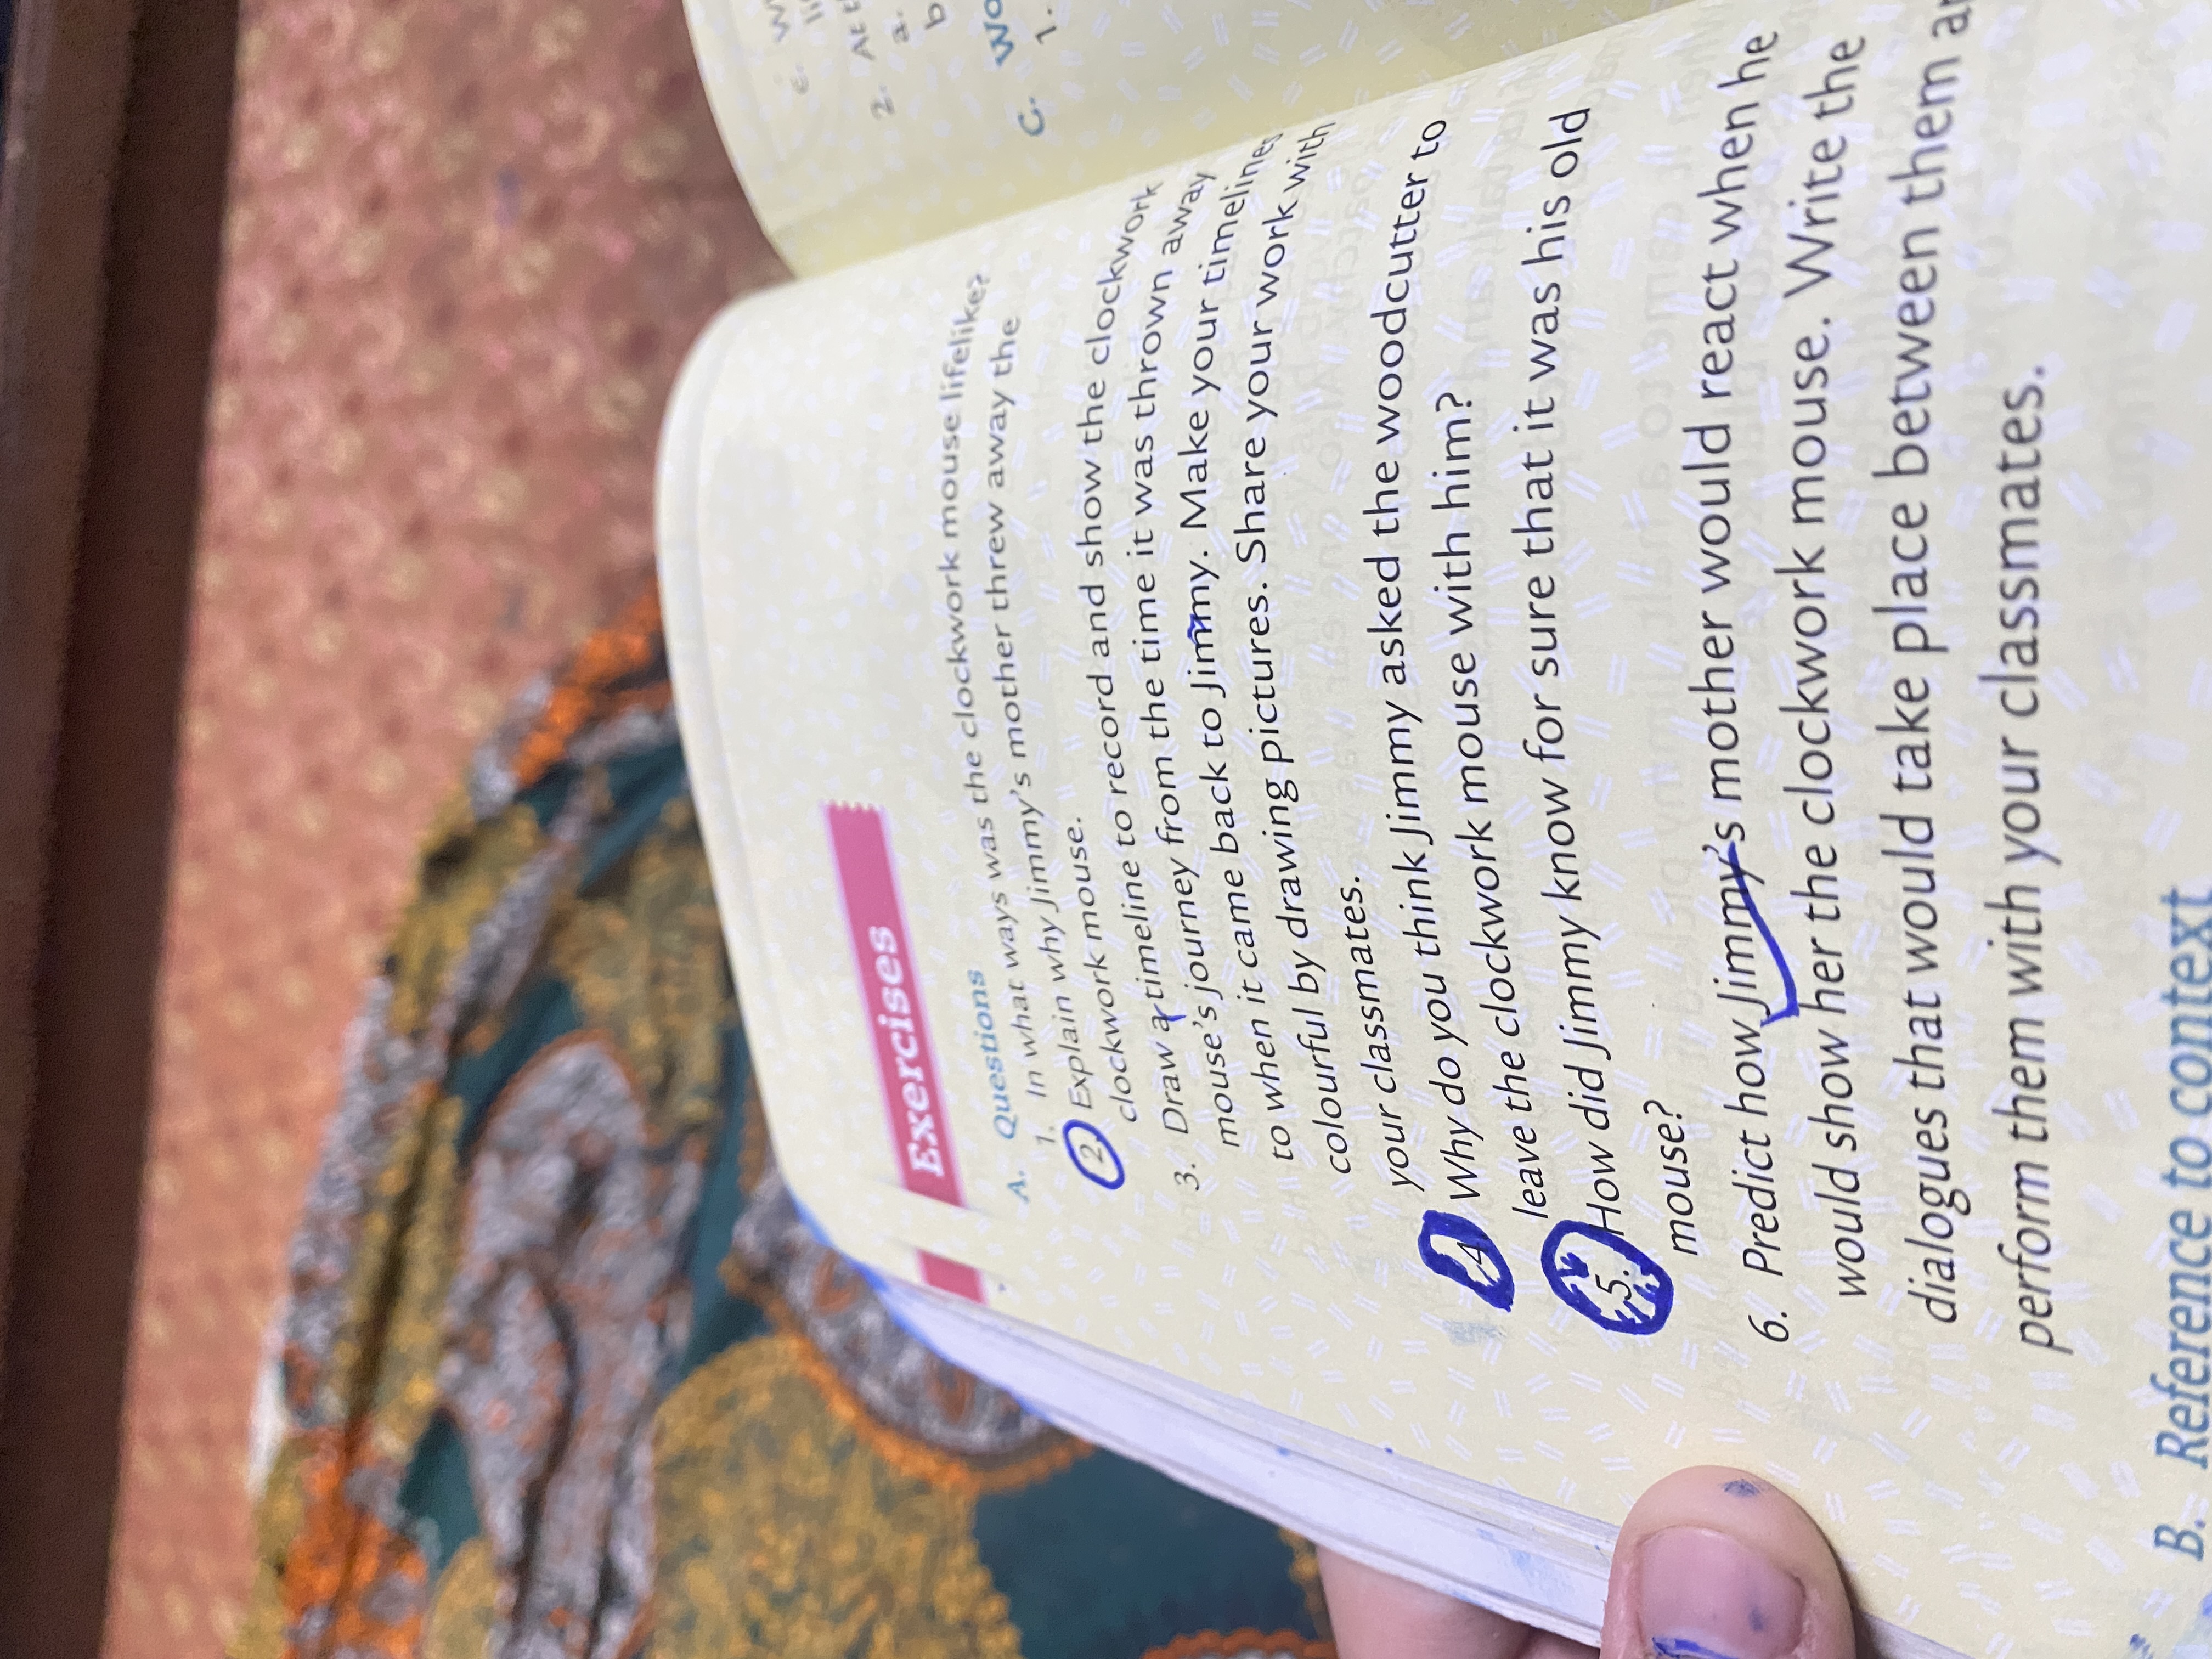 Exercises
A. Questions
1. In what ways was the clockwork mouse lifelike?
2 Explain why Jimmy's mother threw away the
clockwork mouse.
3. Draw a timeline to record and show the clockwork
mouse's journey from the time it was thrown away
to when it came back to Jimmy. Make your timelines
colourful by drawing pictures. Share your work with
your classmates.
4 Why do you think Jimmy asked the woodcutter to
leave the clockwork mouse with him?
5. How did Jimmy know for sure that it was his old
mouse?
6. Predict how Jimmy's mother would react when he
would show her the clockwork mouse. Write the
dialogues that would take place between them
perform them with your classmates.
B. Reference to context
2. At
a.
b
C. Wo
1.